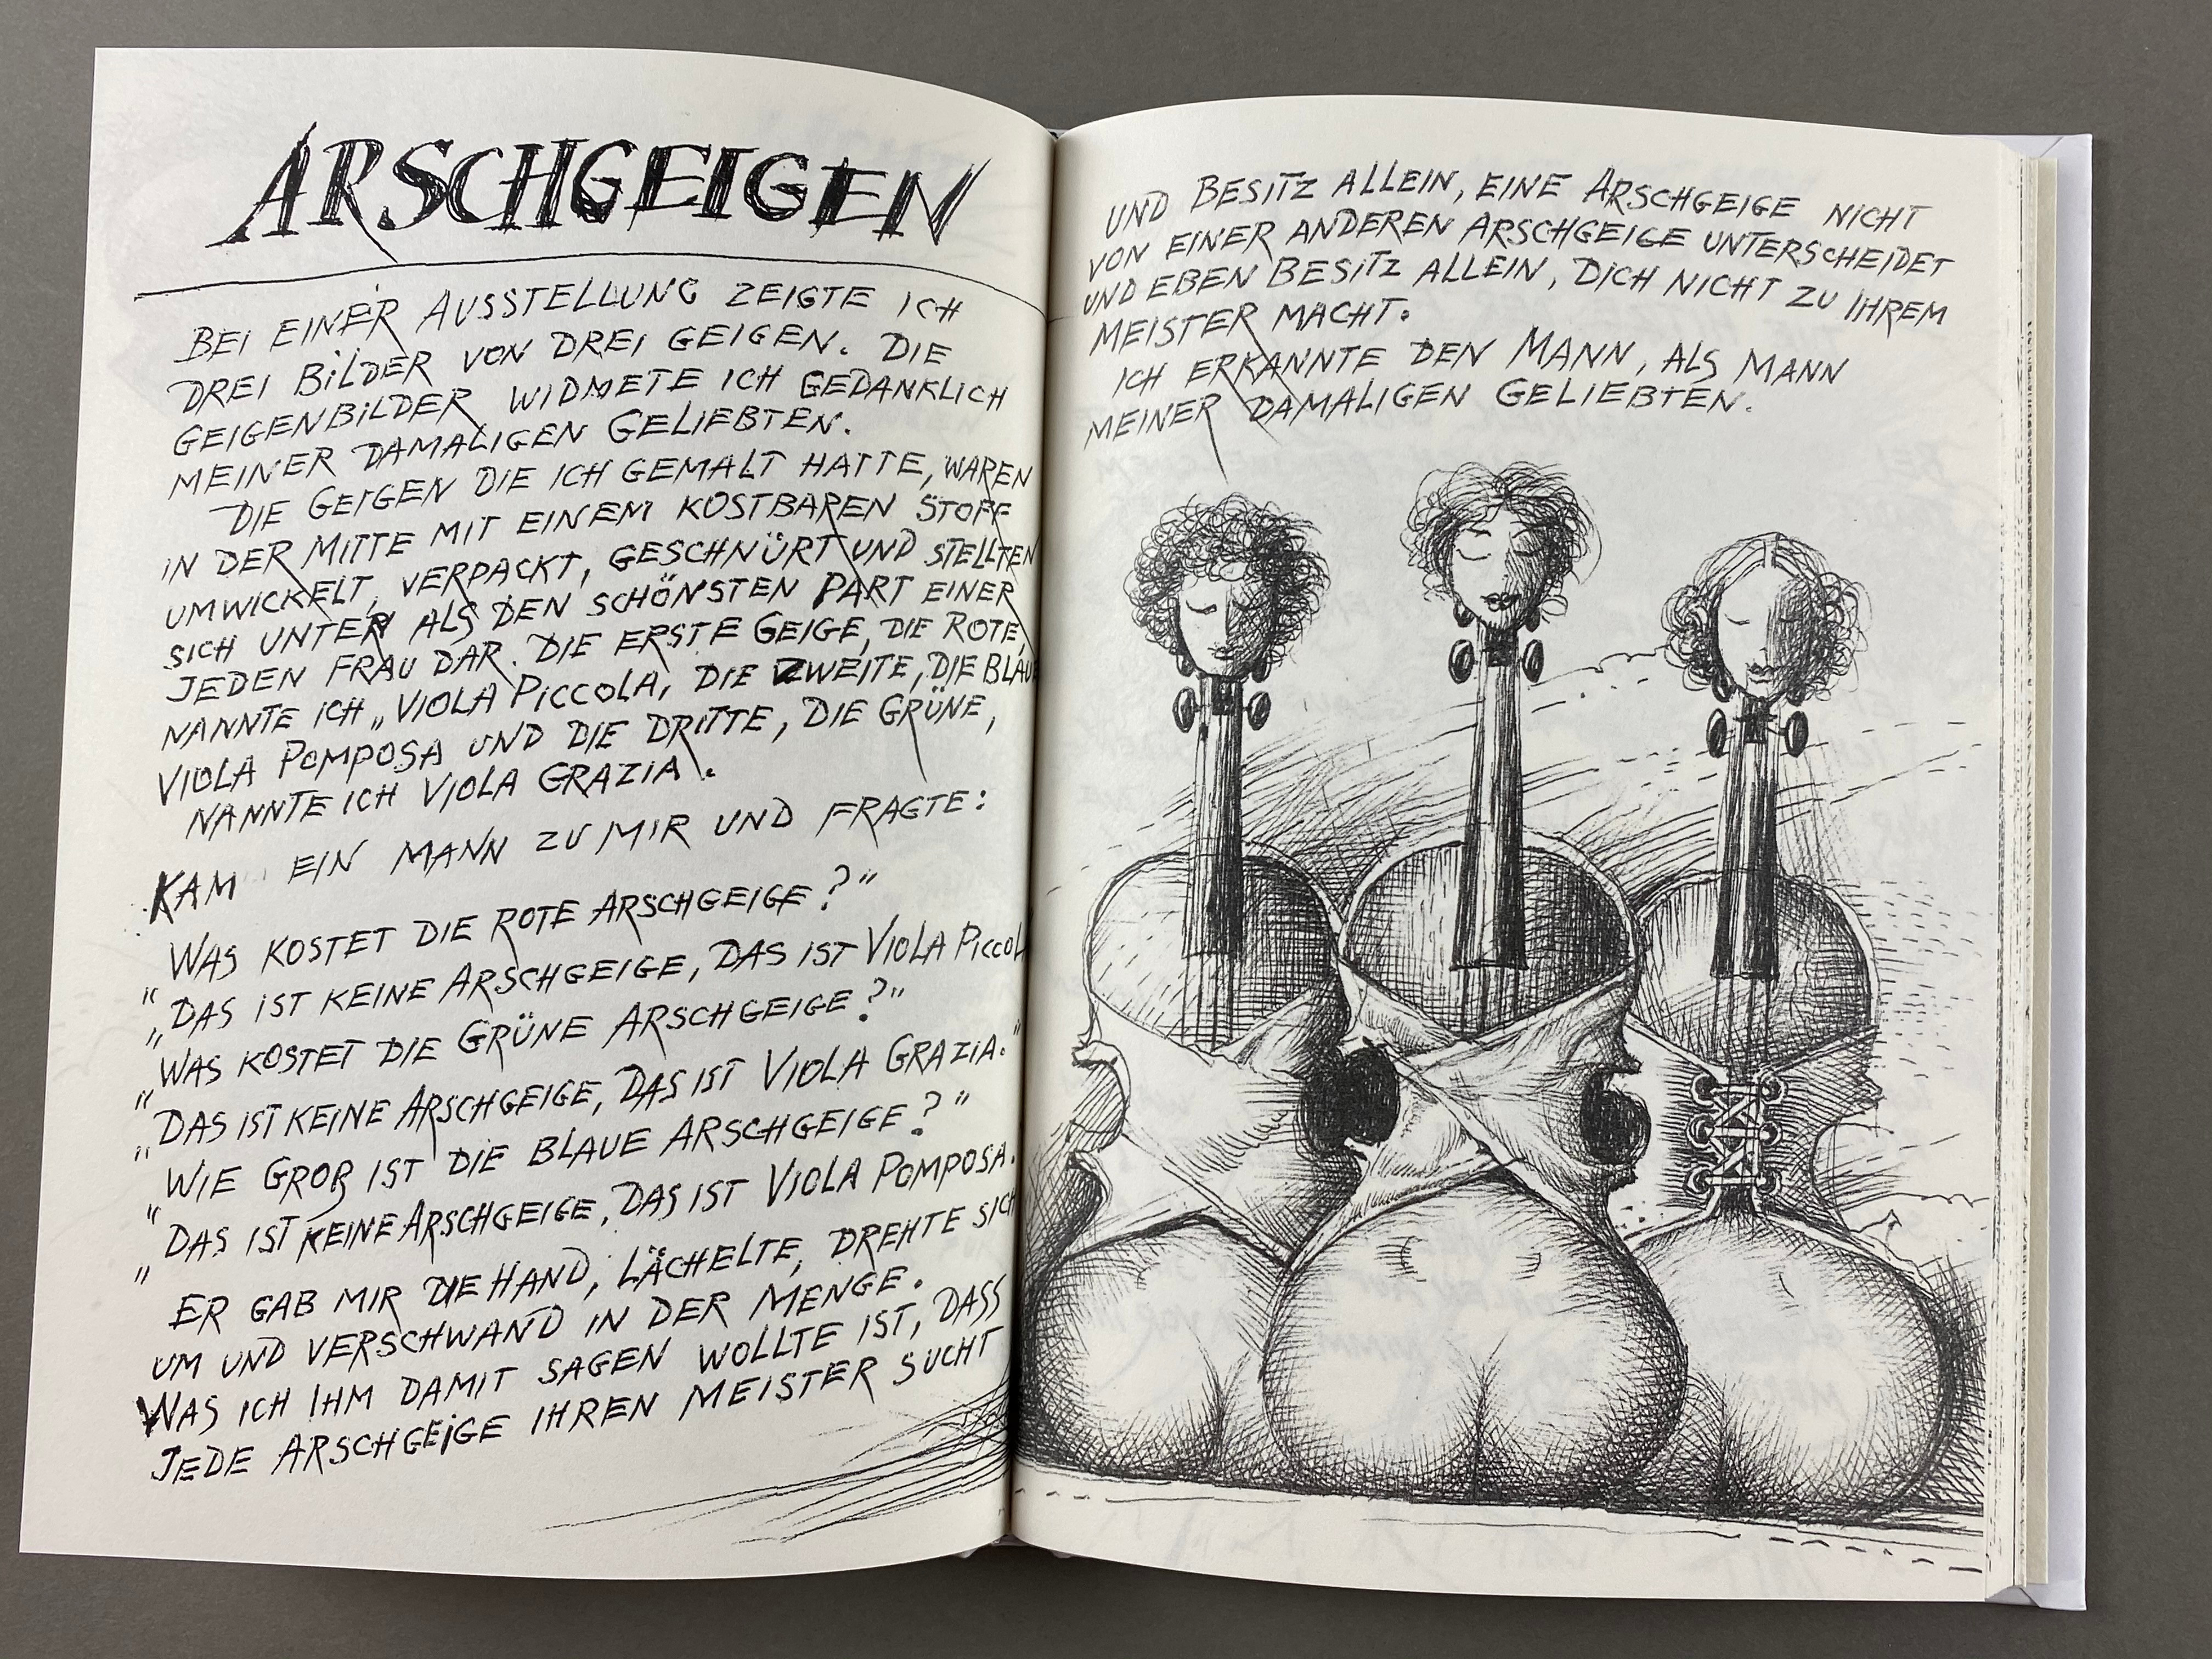 ARSCHGEIGEN
BEI EINER AUSSTELLUNG ZEIGTE ICH
DREI BILDER VON DREI GEIGEN. DIE
GEIGENBILDER WIDMETE ICH GEDANKLICH
MEINER DAMALIGEN GELIEBTEN.
DIE GEIGEN DIE ICH GEMALT HATTE, WAREN
IN DER MITTE MIT EINEM KOSTBAREN STOFF
UMWICKELT, VERPACKT, GESCHNÜRT UND STELLTEN
SICH UNTER ALS DEN SCHÖNSTEN PART EINER
JEDEN FRAU DAR. DIE ERSTE GEIGE, DIE ROTE,
NANNTE ICH „VIOLA PICCOLA, DIE ZWEITE, DIE BLAUE
VIOLA POMPOSA UND DIE DRITTE, DIE GRÜNE,
NANNTE ICH VIOLA GRAZIA.
KAM EIN MANN ZU MIR UND FRAGTE:
"WAS KOSTET DIE ROTE ARSCHGEIGE?"
„DAS IST KEINE ARSCHGEIGE, DAS IST VIOLA PICCOL
"WAS KOSTET DIE GRÜNE ARSCHGEIGE?"
„DAS IST KEINE ARSCHGEIGE, DAS IST VIOLA GRAZIA."
"WIE GROß IST DIE BLAUE ARSCHGEIGE?"
„DAS IST KEINE ARSCHGEIGE, DAS IST VIOLA POMPOSA.
ER GAB MIR DIE HAND, LÄCHELTE, DREHTE SICH
UM UND VERSCHWAND IN DER MENGE.
WAS ICH IHM DAMIT SAGEN WOLLTE IST, DASS
JEDE ARSCHGEIGE IHREN MEISTER SUCHT
UND BESITZ ALLEIN, EINE ARSCHGEIGE NICHT
VON EINER ANDEREN ARSCHGEIGE UNTERSCHEIDET
UND EBEN BESITZ ALLEIN, DICH NICHT ZU IHREM
MEISTER MACHT.
ICH ERKANNTE DEN MANN, ALS MANN
MEINER DAMALIGEN GELIEBTEN.